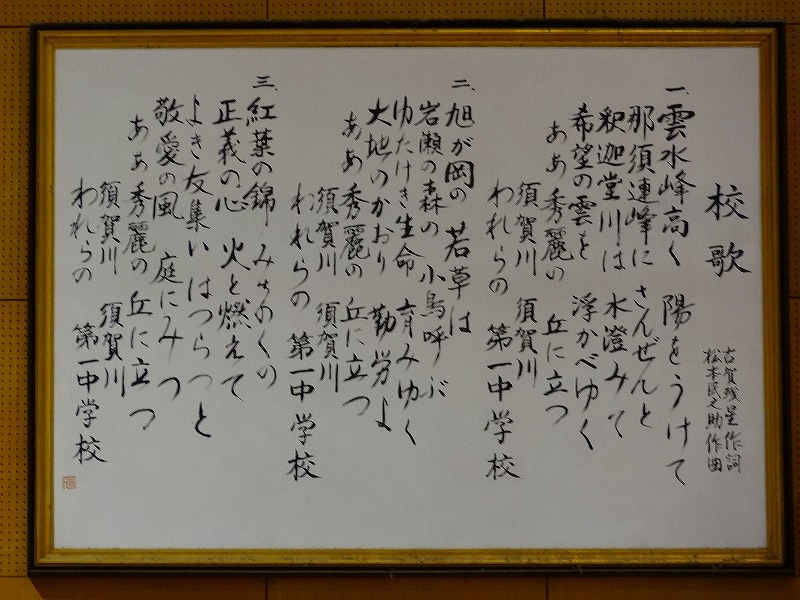 校歌
古賀残星作詞
松本民之助作曲
一、雲水峰高く 陽をうけて
那須連峰に さんぜんと
釈迦堂川は 水澄みて
希望の雲を 浮かべゆく
ああ秀麗の 丘に立つ
須賀川 須賀川
われらの 第一中学校
二、旭が岡の 若草は
岩瀬の森の 小鳥呼ぶ
ゆたけき生命 育みゆく
大地のかおり 勤労よ
ああ秀麗の 丘に立つ
須賀川 須賀川
われらの 第一中学校
三、紅葉の錦 みちのくの
正義の心 火と燃えて
よき友集い はつらつと
敬愛の風 庭にみつ
ああ秀麗の 丘に立つ
須賀川 須賀川
われらの 第一中学校